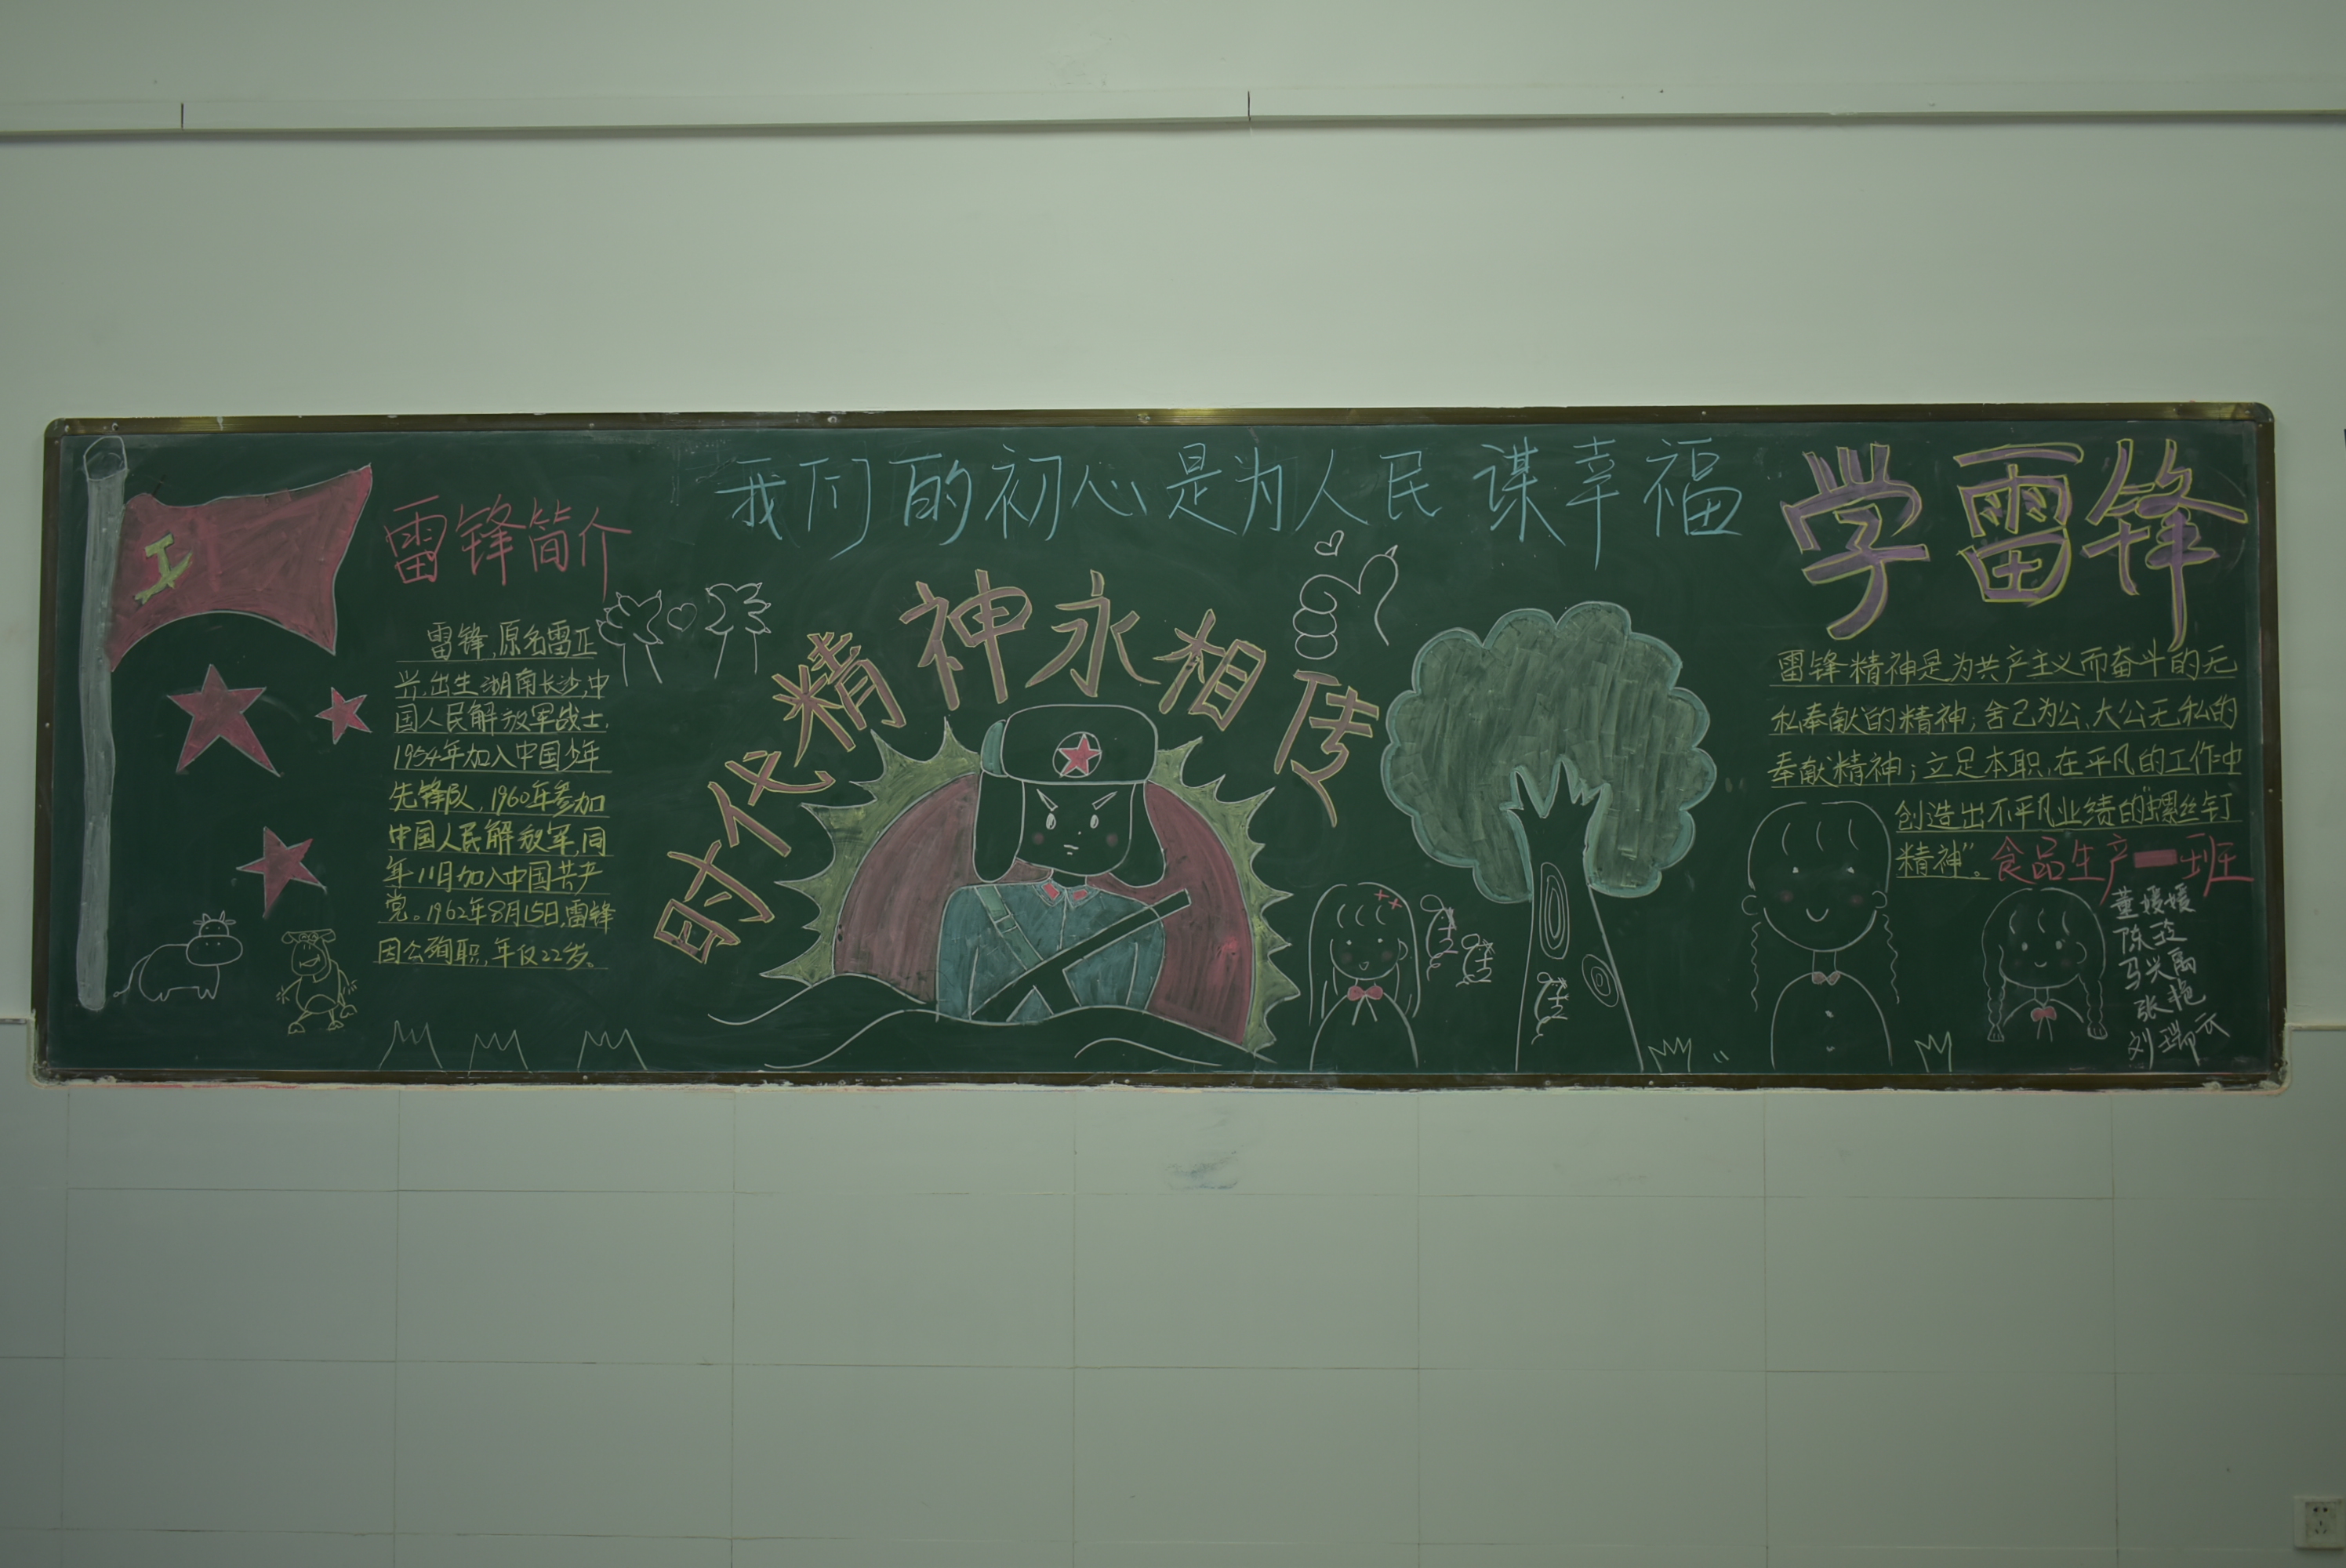 我们的初心是为人民谋幸福
雷锋简介
雷锋,原名雷正
兴,出生湖南长沙,中
国人民解放军战士,
1954年加入中国少年
先锋队,1960年参加
中国人民解放军,同
年11月加入中国共产
党。1962年8月15日,雷锋
因公殉职,年仅22岁。
时代精神永相传
学雷锋
雷锋精神是为共产主义而奋斗的无
私奉献的精神;舍己为公、大公无私的
奉献精神;立足本职,在平凡的工作中
创造出不平凡业绩的"螺丝钉
精神"。
食品生产一班
董媛媛
张艳
刘瑞云